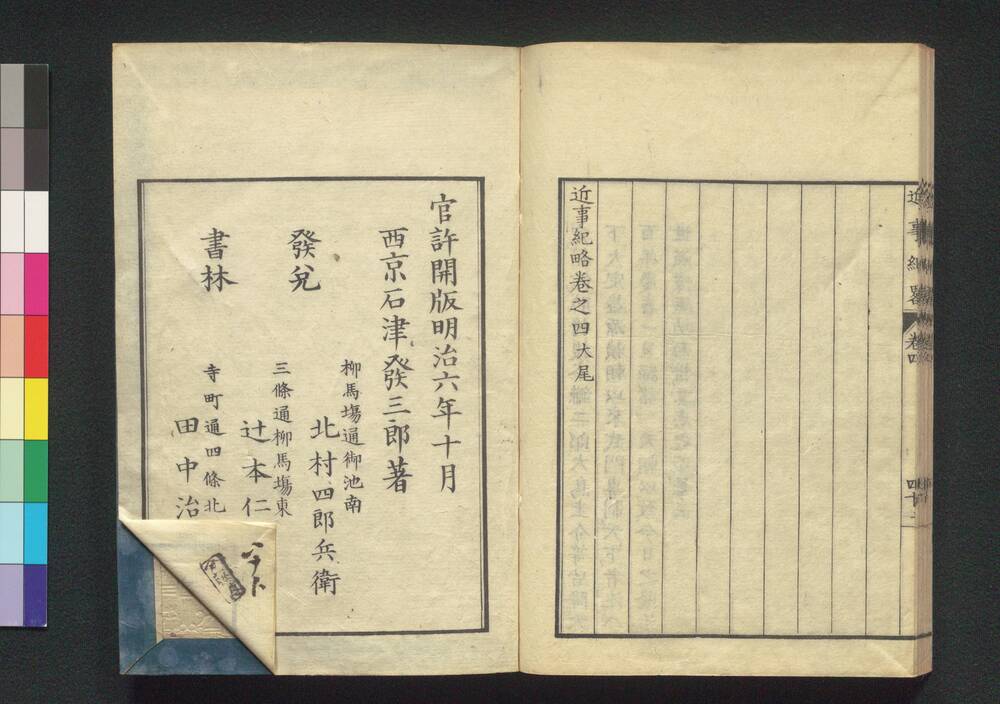 近事紀略
卷四
四十二
近事紀略卷之四大尾
官許開版明治六年十月
西京石津發三郎著
發兌
書林
柳馬塲通御池南
北村四郎兵衛
三條通柳馬塲東
辻本仁
寺町通四條北
田中治